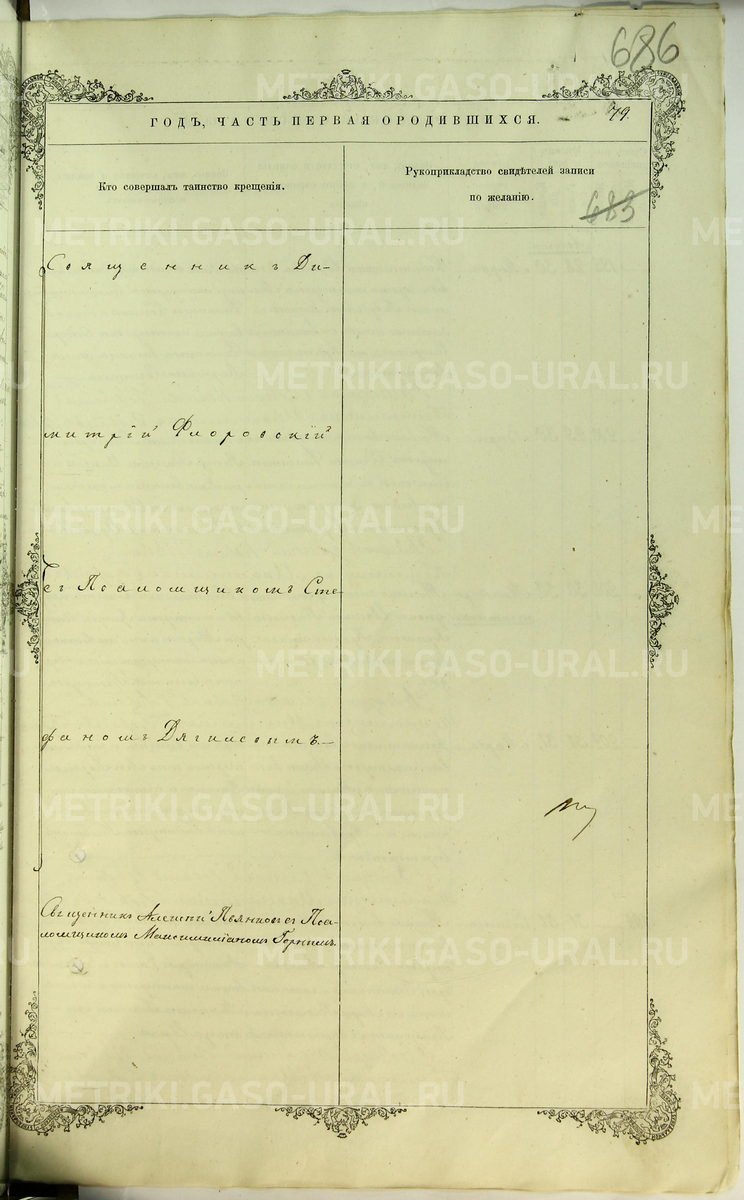 686
ГОДЪ, ЧАСТЬ ПЕРВАЯ О РОДИВШИХСЯ.
79.
Кто совершалъ таинство крещенія.
Рукоприкладство свидѣтелей записи
по желанію.
683
Священникъ Ди-
митрій Флоровскій
съ Псаломщикомъ Сте-
фаномъ Дягилевымъ.
Священникъ Алексій съ Пса-
ломщикомъ Максимиліаномъ
METRIKI.GASO-URAL.RU